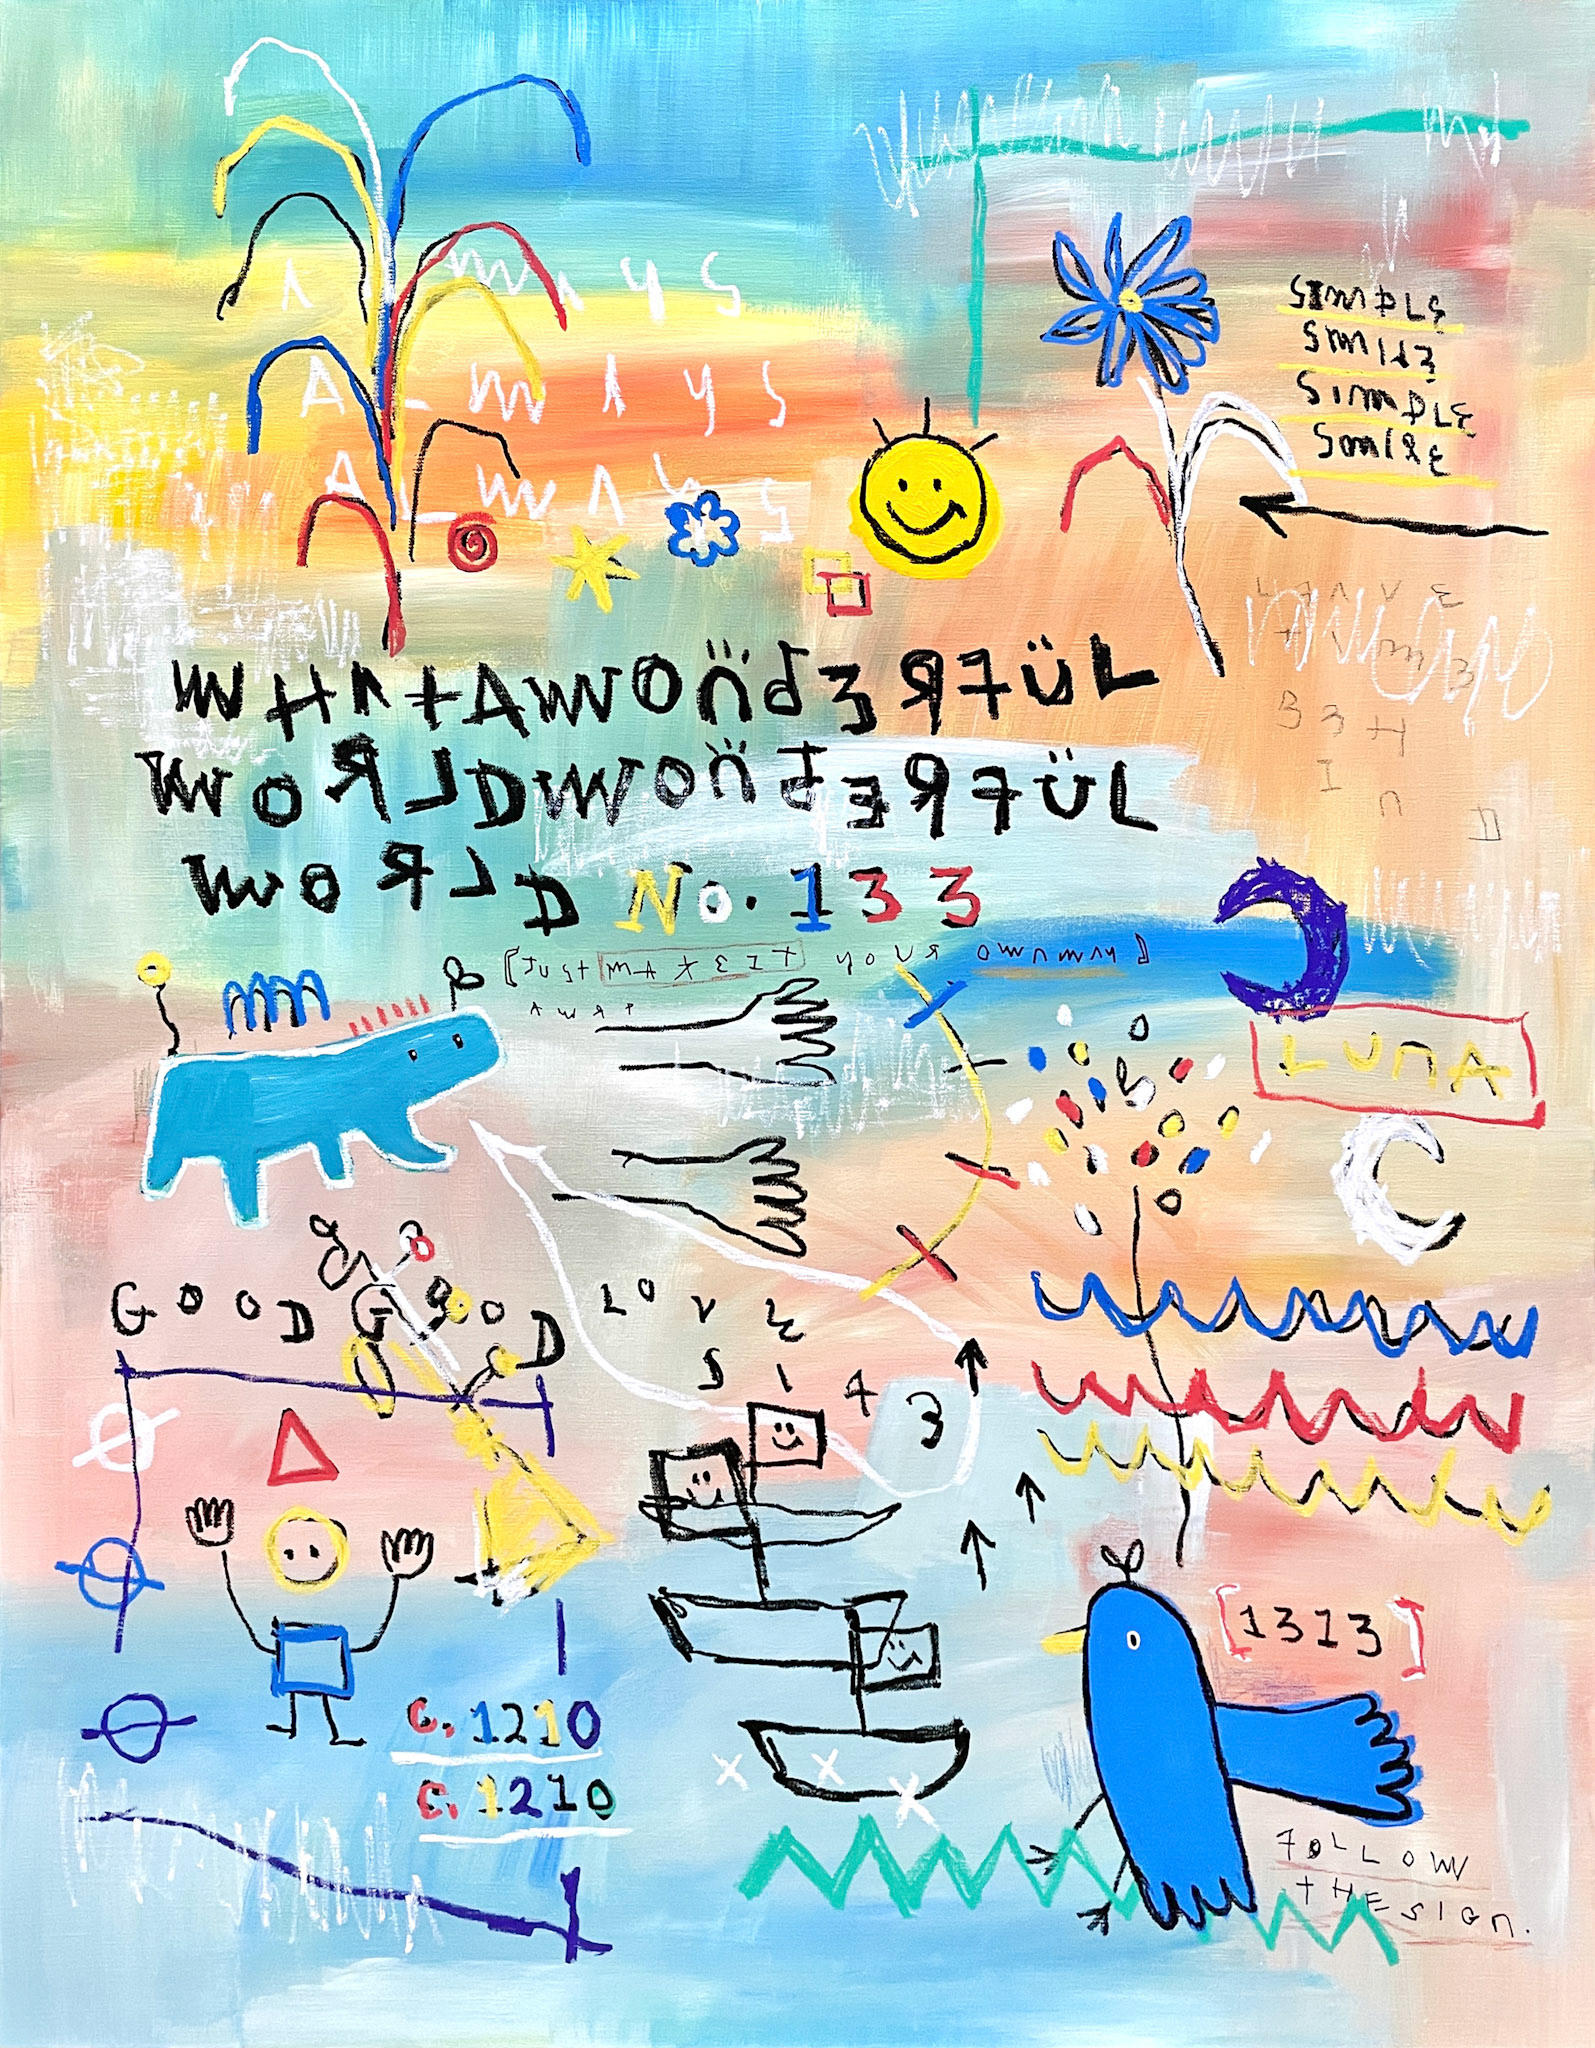 ALWAYS
ALWAYS
SIMPLE
SMILE
SIMPLE
SMILE
WHATAWOÜDERFÜL
WORLDWOÜDERFÜL
WORLD No.133
[JUST MAKEIT YOUR OWNWAY]
LUNA
GOOD GOOD
LOVE
[1313]
C.1210
C.1210
FOLLOW
THESIGN.